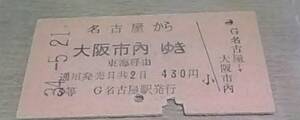 34-5.21
名古屋から
大阪市内ゆき
東海経由
通用発売日共2日 430円
等 G名古屋駅発行
G名古屋
↓
大阪市内